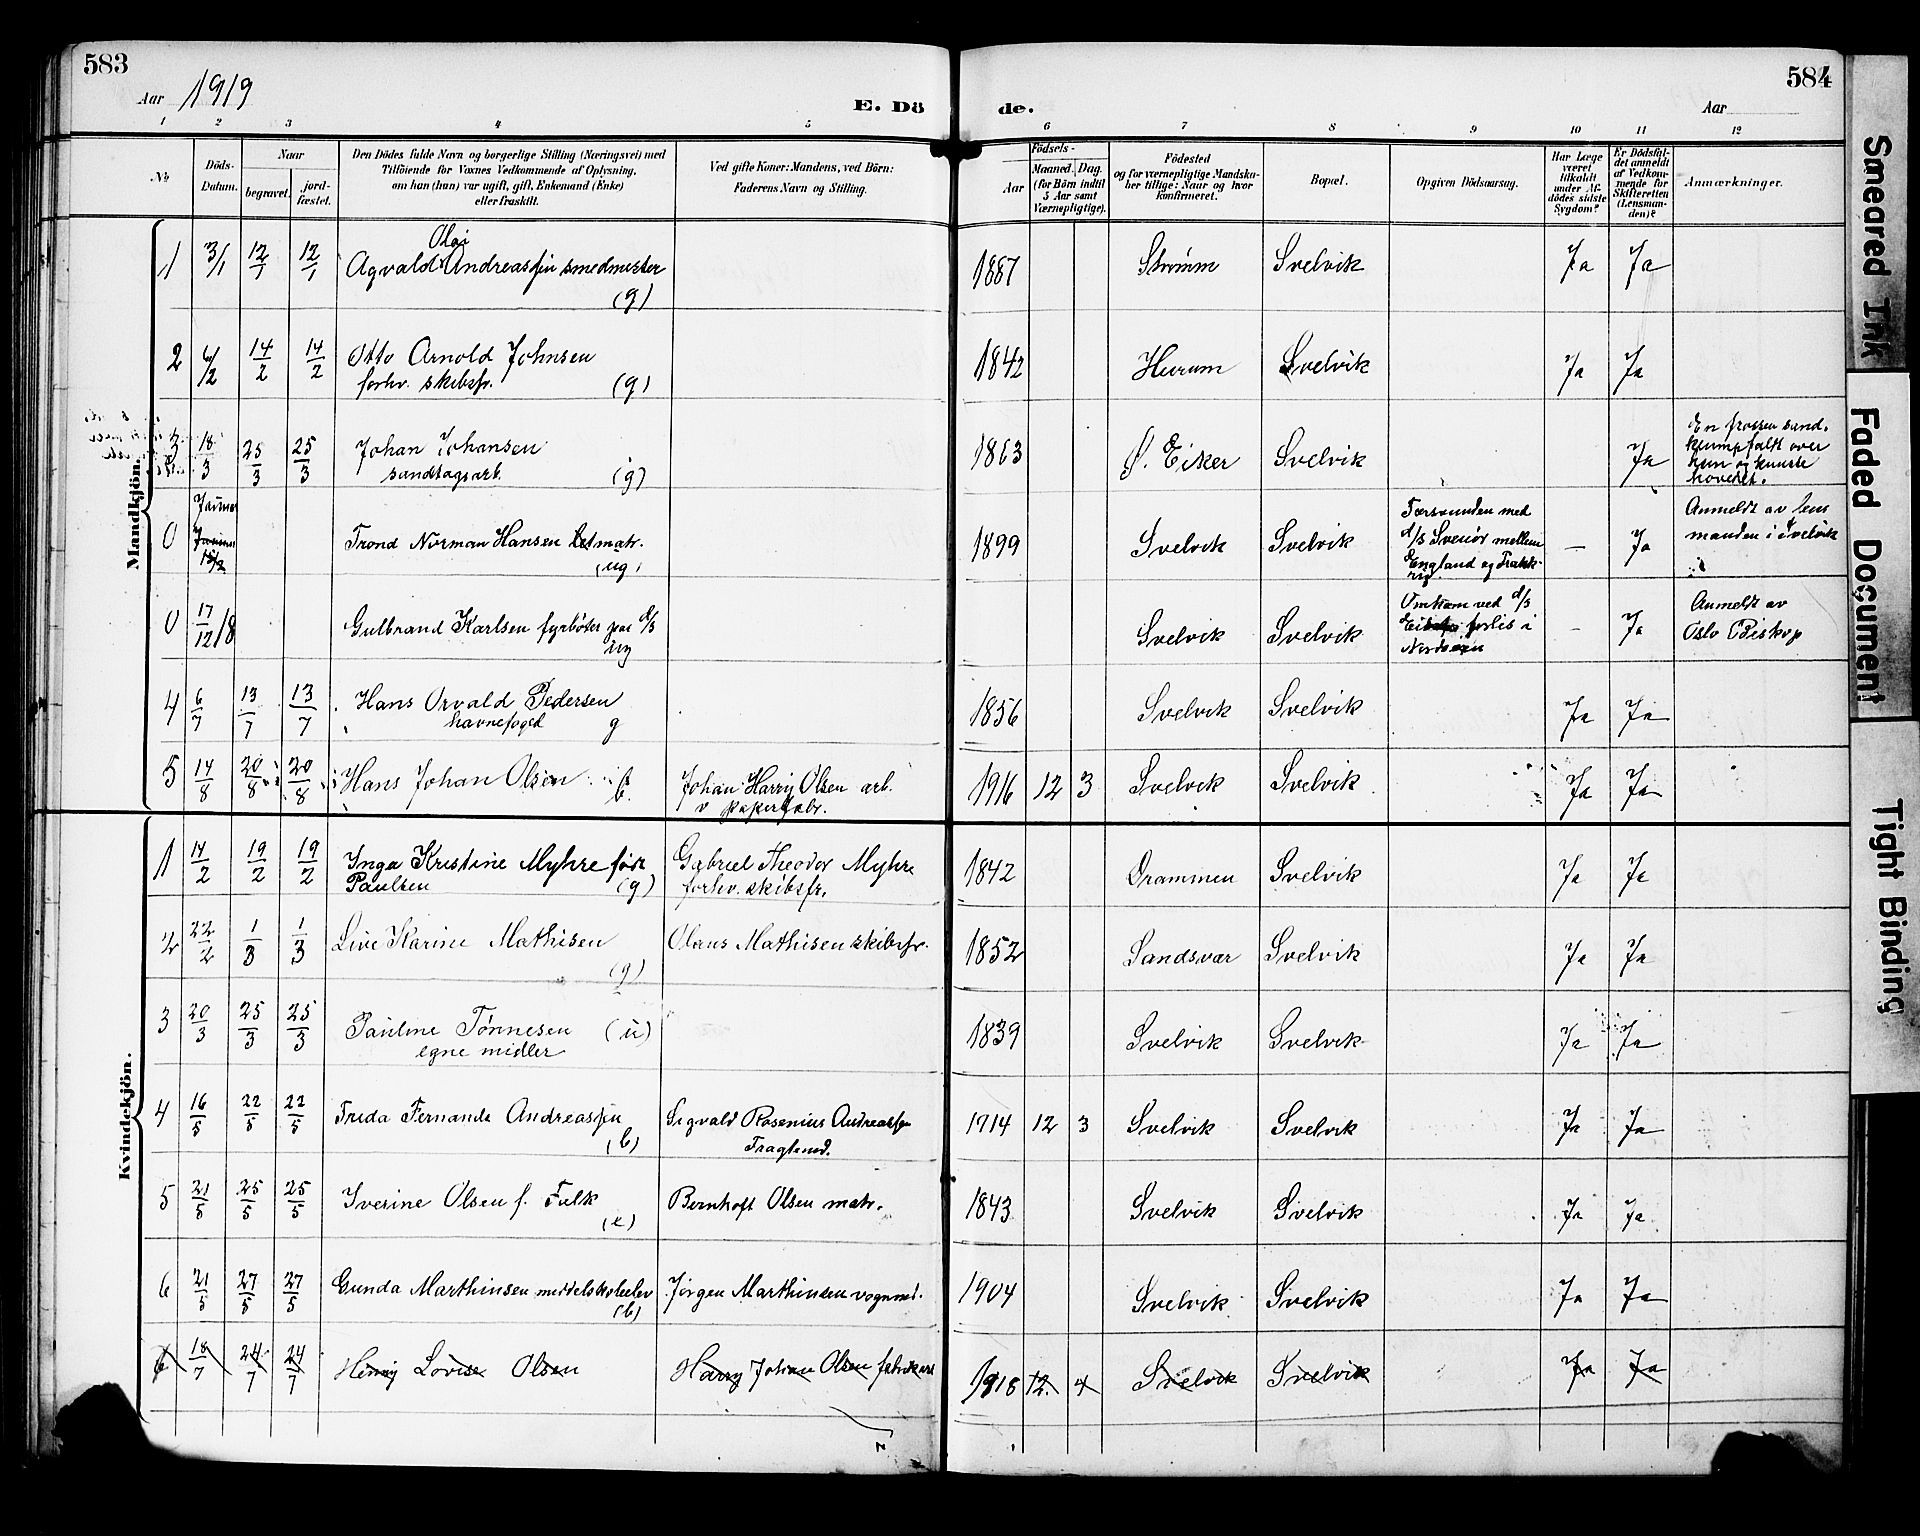 583
584
Aar 1919
E. Dö
de.
Aar
1 2 3 4 5 6 7 8 9 10 11 12
No
Döds-Datum.
Naar
begravet.
jord-fæstet.
Den Dödes fulde Navn og borgerlige Stilling (Næringsvei) med
Tilföiende for Voxnes Vedkommende af Oplysning,
om han (hun) var ugift, gift, Enkemand (Enke)
eller fraskilt.
Ved gifte Koner: Mandens, ved Börn:
Faderens Navn og Stilling.
Födsels-
Aar
Maaned. Dag.
(for Börn indtil
5 Aar samt
Værnepligtige).
Födested
og for værnepligtige Mandska-
ber tillige: Naar og hvor
konfirmeret.
Bopæl.
Opgiven Dödsaarsag.
Har Læge
været
tilkaldt
under Af-
dödes sidste
Sygdom?
Er Dödsfal-
det anmeldt
af Vedkom-
mende for
Skifteretten
(Lensman-
den)?
Anmærkninger.
Mandkjön.
1 3/1 12/1 12/1 Agvald Olai Andreassen smedmester (g) 1887 Strømm Svelvik Ja Ja
2 6/2 14/2 14/2 Otto Arnold Johnsen 1842 Hurum Svelvik Ja Ja
forhv. skibsfr. (g)
3 18/3 25/3 25/3 Johan Johansen 1863 Ø. Eiker Svelvik Ja En frossen sand-
sandtagsarb. (g) klump faldt over
ham og knuste
hovedet.
0 Trond Norman Hansen letmatr. (ug) 1899 Svelvik Svelvik Forsvunden med
d/s Svenör mellem
England og Frank-
rig
— Ja Anmeldt av lens
manden i Svelvik
0 17/12/8 Gulbrand Karlsen fyrbøter paa d/s ug Svelvik Svelvik Omkom ved d/s
forlis i
Nordsøen
– Ja Anmeldt av
Oslo Biskop
4 6/7 13/7 13/7 Hans Orvald Pedersen 1856 Svelvik Svelvik Ja Ja
havnefoged g
5 14/8 20/8 20/8 Hans Johan Olsen b. Johan Harry Olsen arb. 1916 12 3 Svelvik Svelvik Ja Ja
v papirfabr.
Kvindekjön.
1 14/2 19/2 19/2 Inga Kristine Myhre født Gabriel Theodor Myhre 1842 Drammen Svelvik Ja Ja
Paulsen (g) forhv. skibsfr.
2 22/2 1/3 1/3 Live Karine Mathisen (g) Olaus Mathisen skibsfr. 1852 Sandsvær Svelvik Ja Ja
3 20/3 25/3 25/3 Pauline Tønnesen (u) 1839 Svelvik Svelvik Ja Ja
egne midler
4 16/5 22/5 22/5 Frida Fernanda Andreassen (b) Sigvald Rosenius Andreassen 1914 12 3 Svelvik Svelvik Ja Ja
5 21/5 25/5 25/5 Iverine Olsen f. Falk (e) Bernhoft Olsen matr. 1843 Svelvik Svelvik Ja Ja
6 21/5 27/5 27/5 Gunda Marthinsen middelskoleelev (b) Jørgen Marthinsen vognm. 1904 Svelvik Svelvik Ja Ja
6 18/7 24/7 24/7 Henny Lovise Olsen Harry Johan Olsen 1918 12. 4 Svelvik Svelvik Ja Ja
Smeared Ink
Faded Document
Tight Binding